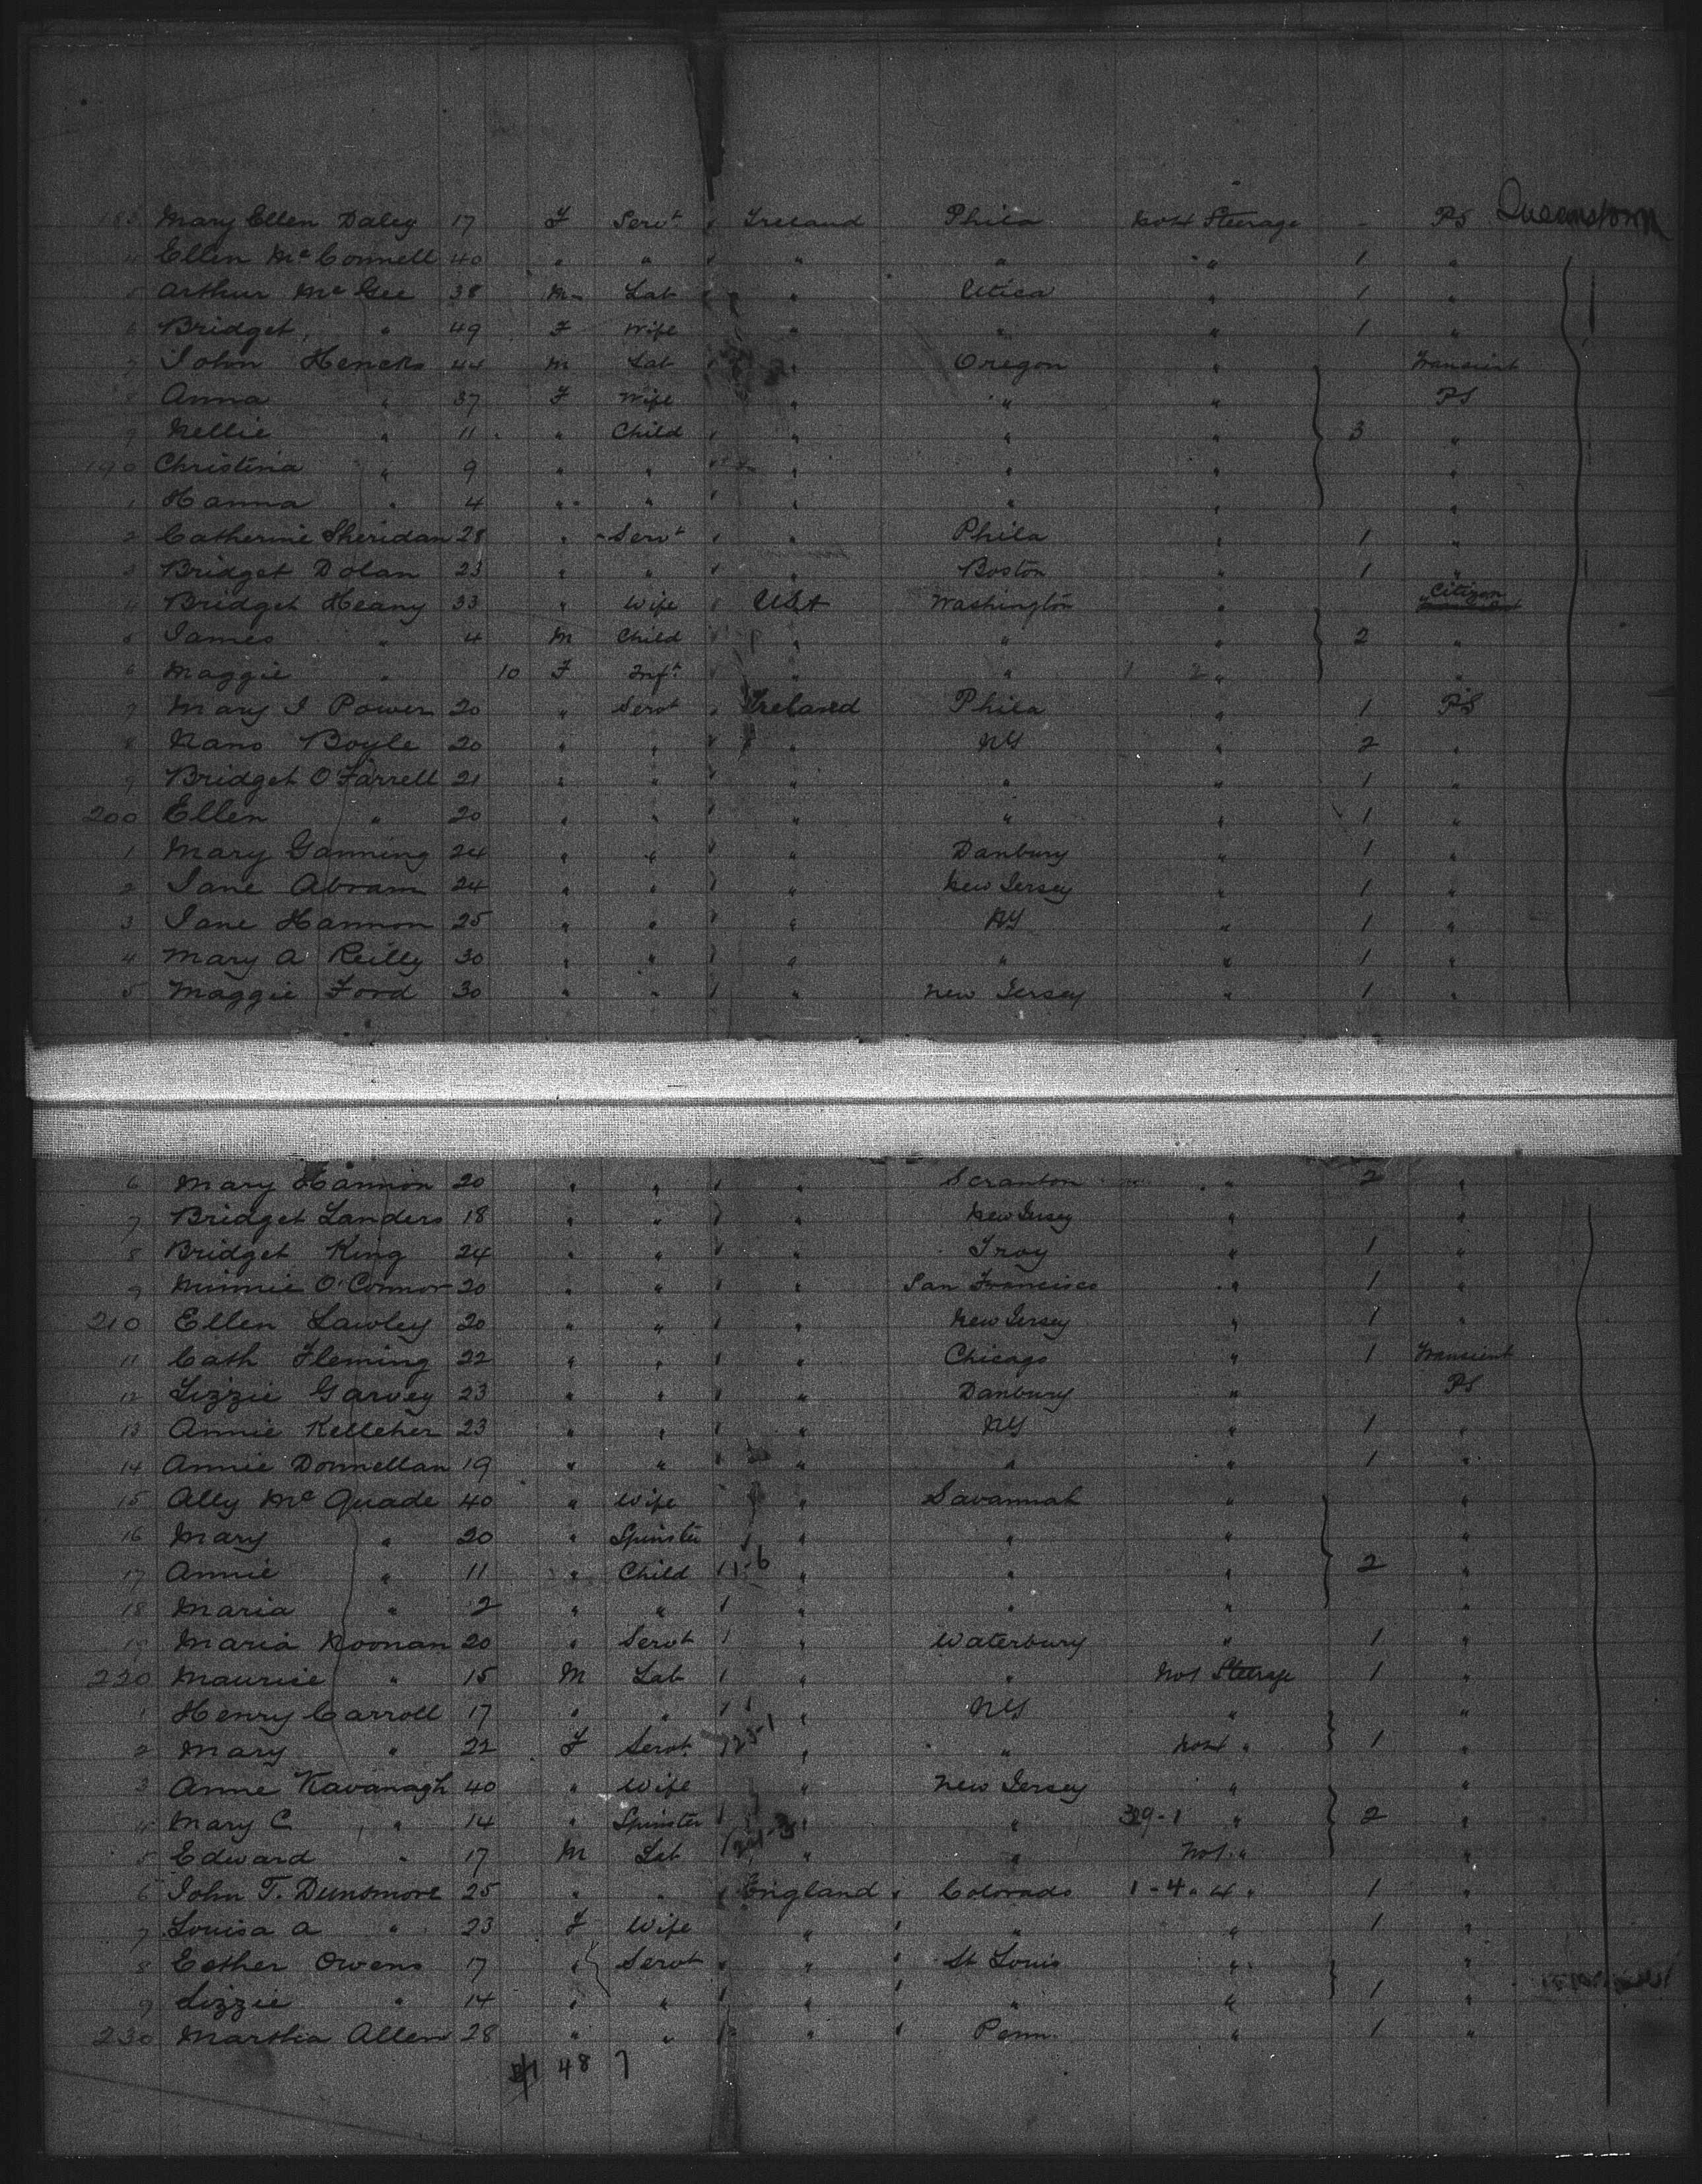 183 Mary Ellen Daley 17 F Servt " Ireland Phila No 4 Steerage - PS Queenstown
4 Ellen McConnell 40 " " " " " 1 "
5 Arthur McGee 38 M Lab " Utica " 1 "
6 Bridget " 49 F Wife " " " 1 "
7 John Hencks 44 M Lab " Oregon " Transient
8 Anna " 37 F Wife " " " PS
9 Nellie " 11 " Child " " " 3 "
190 Christina " 9 " " " " " "
1 Hanna " 4 " " " " " "
2 Catherine Sheridan 28 " Servt " Phila " 1 "
3 Bridget Dolan 23 " " " Boston " 1 "
4 Bridget Heany 33 " Wife USA Washington " Citizen
5 James " 4 M Child " " " 2 "
6 Maggie " 10 F Inft " " "
7 Mary J Power 20 " Servt Ireland Phila " 1 PS
8 Nano Boyle 20 " " " NY " 2 "
9 Bridget O'Farrell 21 " " " " " 1 "
200 Ellen " 20 " " " " " 1 "
1 Mary Ganning 24 " " " Danbury " 1 "
2 Jane Abram 24 " " " New Jersey " 1 "
3 Jane Hannon 25 " " " NY " 1 "
4 Mary A Reilly 30 " " " " " 1 "
5 Maggie Ford 30 " " " New Jersey " 1 "
6 Mary Hannon 20 " " " Scranton " 2 "
7 Bridget Landers 18 " " " New Jersey " "
8 Bridget King 24 " " " Troy " 1 "
9 Minnie O'Connor 20 " " " San Francisco " 1 "
210 Ellen Lawley 20 " " " New Jersey " 1 "
11 Cath Fleming 22 " " " Chicago " 1 Transient
12 Lizzie Garvey 23 " " " Danbury " PS
13 Annie Kelleher 23 " " " NY " 1 "
14 Annie Donnellan 19 " " " " " 1 "
15 Ally McQuade 40 " Wife " Savannah " "
16 Mary " 20 " Spinster " " " "
17 Annie " 11 " Child 11-6 " " " 2 "
18 Maria " 2 " " " " " "
19 Maria Noonan 20 " Servt " Waterbury " 1 "
220 Maurice " 15 M Lab " " No 1 Steerage 1 "
1 Henry Carroll 17 " " " NY " "
2 Mary " 22 F Servt " " No 4 " 1 "
3 Anne Kavanagh 40 " Wife " New Jersey " "
4 Mary C " 14 " Spinster " " 39-1 " 2 "
5 Edward " 17 M Lab " " No 1 " "
6 John T. Dunsmore 25 " " England Colorado 1-4 " 1 "
7 Louisa A " 23 F Wife " " " 1 "
8 Esther Owens 17 " Servt " St Louis " "
9 Lizzie " 14 " " " " " 1 "
230 Martha Allen 28 " " " Penn " 1 "
48 7